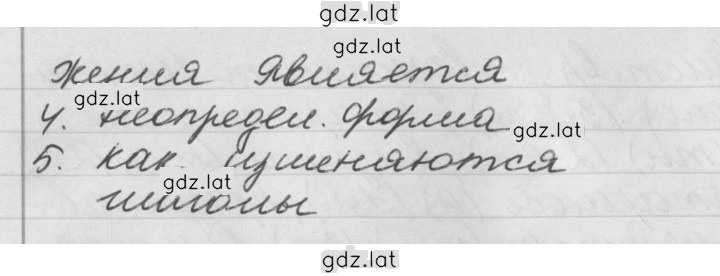 gdz.lat
gdz.lat
жения является
gdz.lat
4. неопредел. форма
gdz.lat
5. как изменяются
gdz.lat
глаголы
gdz.lat